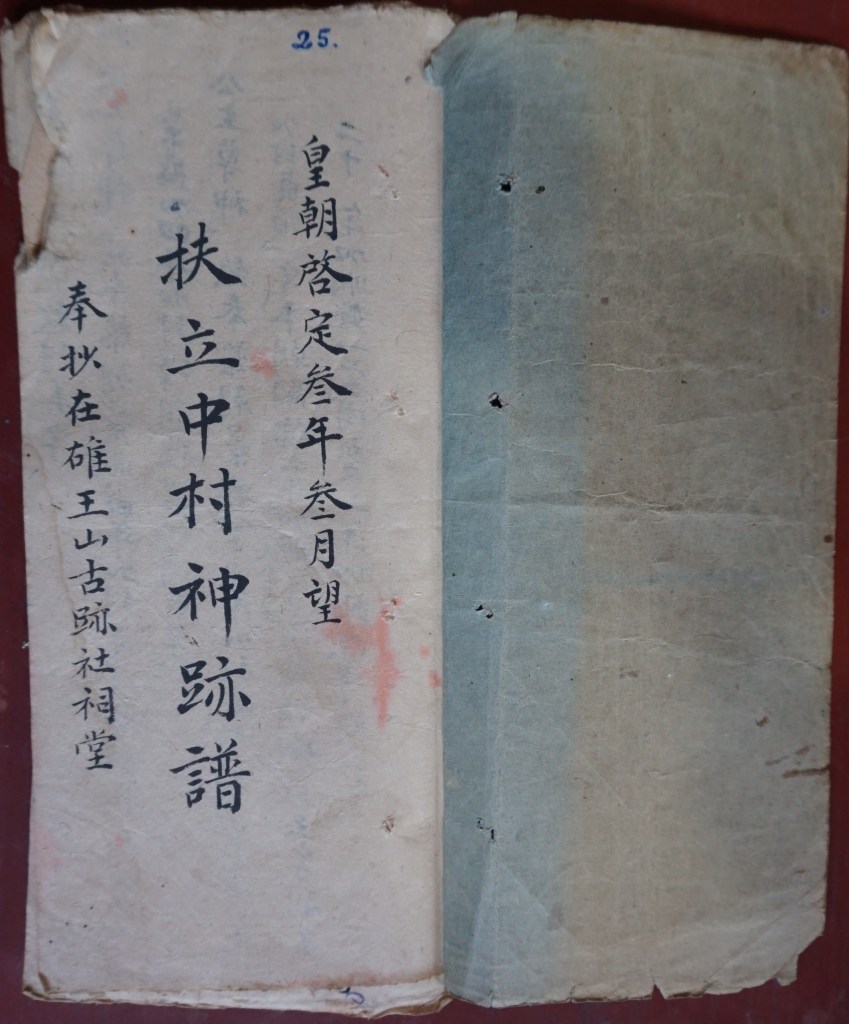 25.
皇朝啓定叁年叁月望
扶立中村神跡譜
奉抄在雄王山古跡社祠堂